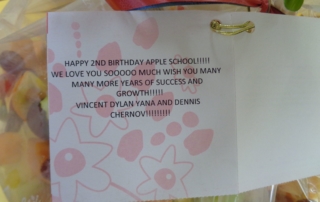 HAPPY 2ND BIRTHDAY APPLE SCHOOL!!!!!
WE LOVE YOU SOOOOO MUCH WISH YOU MANY
MANY MORE YEARS OF SUCCESS AND
GROWTH!!!!!
VINCENT DYLAN YANA AND DENNIS
CHERNOV!!!!!!!!!